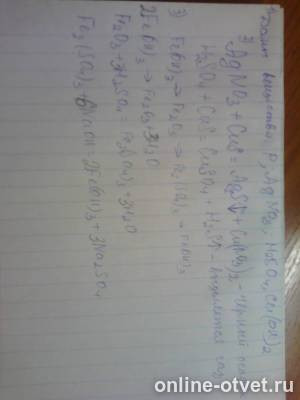 вещества: P, AgNO3, H2SO4, Cu(OH)2
3) AgNO3 + CuS = AgS↓ + Cu(NO3)2 - чёрный
H2SO4 + CuS = CuSO4 + H2S↑ - выделяется газ
3) Fe(OH)3 → Fe2O3 → Fe2(SO4)3 → Fe(OH)3
2Fe(OH)3 → Fe2O3 + 3H2O
Fe2O3 + 3H2SO4 = Fe2(SO4)3 + 3H2O
Fe2(SO4)3 + 6NaOH = 2Fe(OH)3 + 3Na2SO4
online-otvet.ru